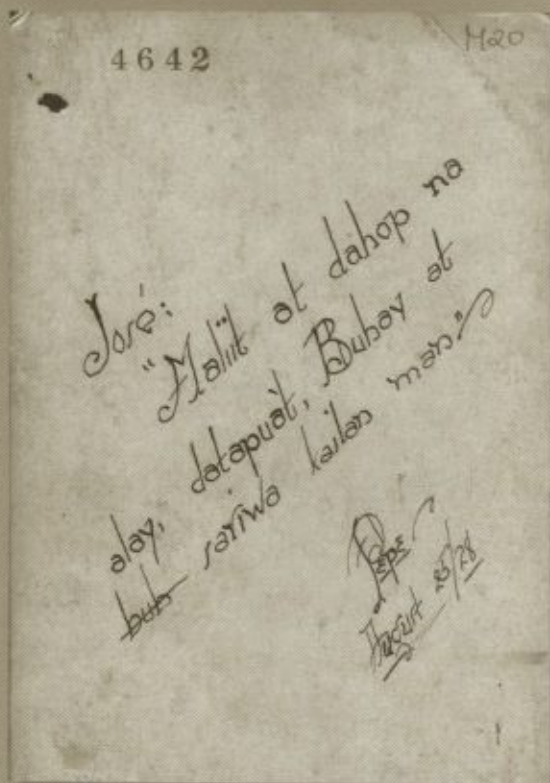 4642
M20
José:
"Maliit at dahop na
alay, datapuát, Buhay at
buh sariwa kailan man."
Pepe
August 25/28